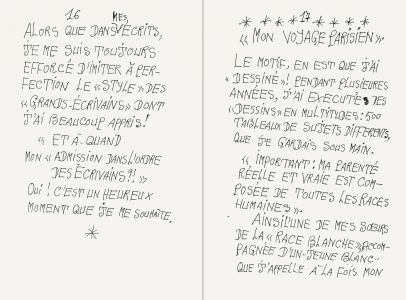 16
ALORS QUE DANS MES ÉCRITS,
JE ME SUIS TOUJOURS
EFFORCÉ D'IMITER À PER-
FECTION LE « STYLE » DES
« GRANDS-ÉCRIVAINS » DONT
J'AI BEAUCOUP APPRIS!
« ET À-QUAND
MON « ADMISSION DANS L'ORDRE
DES ÉCRIVAINS?! »
OUI! C'EST UN HEUREUX
MOMENT QUE JE ME SOUHAITE.
17
« MON VOYAGE PARISIEN »
LE MOTIF, EN EST QUE J'AI
DESSINÉ »! PENDANT PLUSIEURES
ANNÉES, J'AI EXECUTÉS DES
« DESSINS » EN MULTITUDES: 500
TABLEAUX DE SUJETS DIFFÉRENTS,
QUE JE GARDAIS SOUS MAIN.
« IMPORTANT: MA PARENTÉ
RÉELLE ET VRAIE EST COM-
POSÉE DE TOUTES LES RACES
HUMAINES ».
AINSI L'UNE DE MES SŒURS
DE LA « RACE BLANCHE », ACCOM-
PAGNÉE D'UN-JEUNE BLANC-
QUE J'APPELLE À-LA FOIS MON